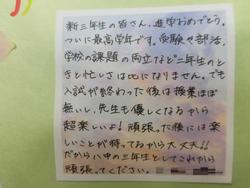 新三年生の皆さん、進学おめでとう。
ついに最高学年です。受験や部活、
学校の課題の両立など二年生のと
きと忙しさは比になりません。でも
入試が終わった後は授業はほぼ
無いし、先生も優しくなるから
超楽しいよ!頑張った後には楽
しいことが待ってるから大丈夫!!
だから八中の三年生としてこれから
頑張ってください。